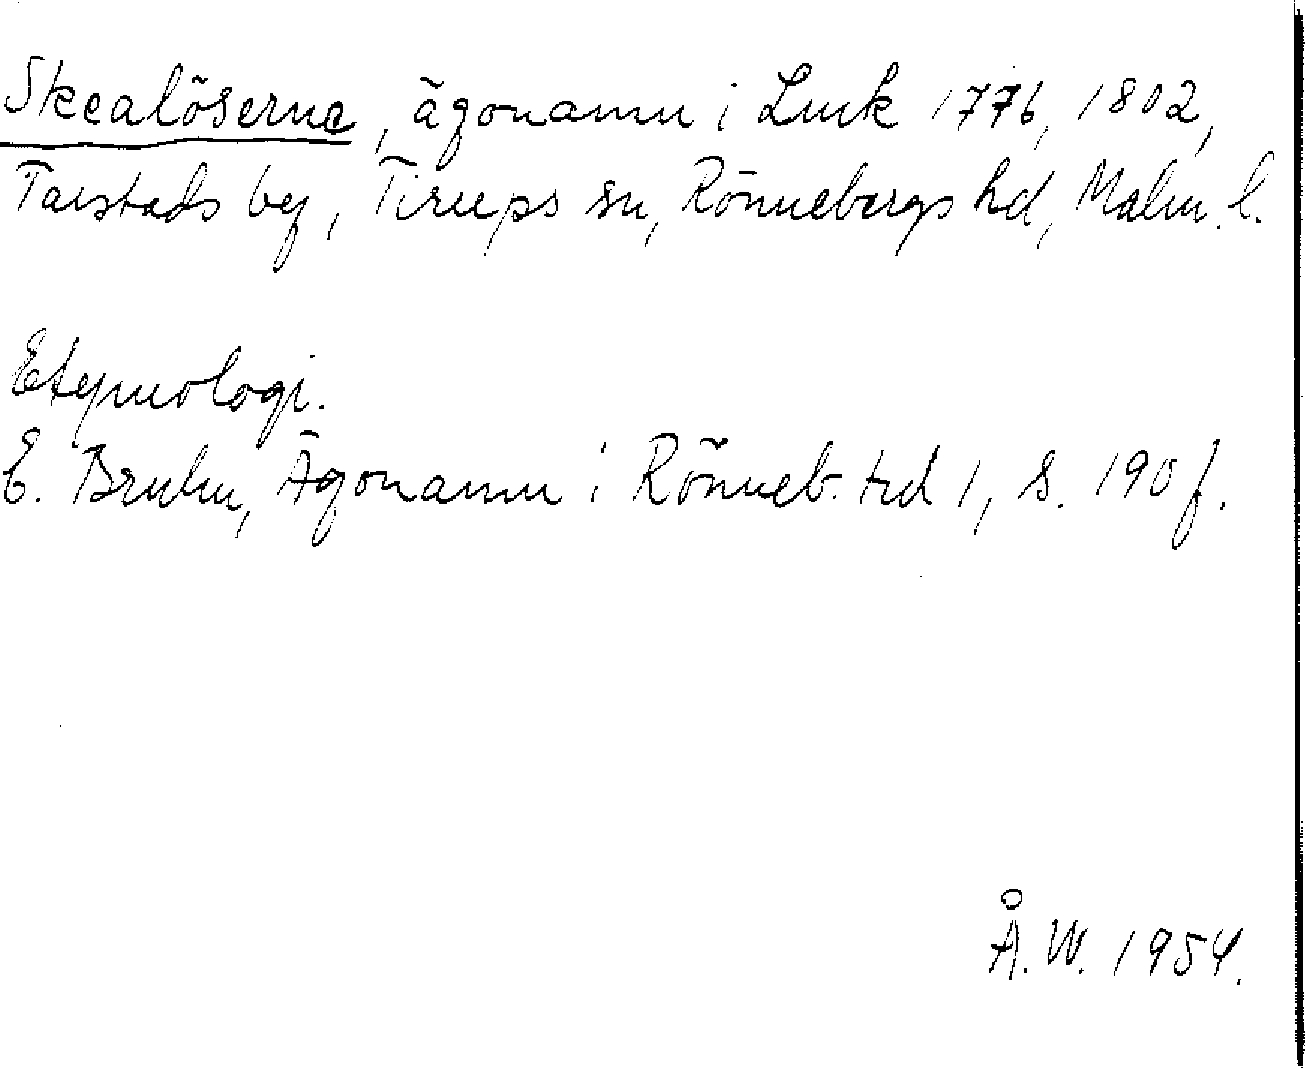 Skealöserne, ägonamn i Lmk 1776, 1802,
Tarstads by, Tirups sn, Rönnebergs hd, Malm. l.
Etymologi.
E. Bruhn, Ägonamn i Rönneb. hd 1, s. 190 f.
Å. W. 1954.